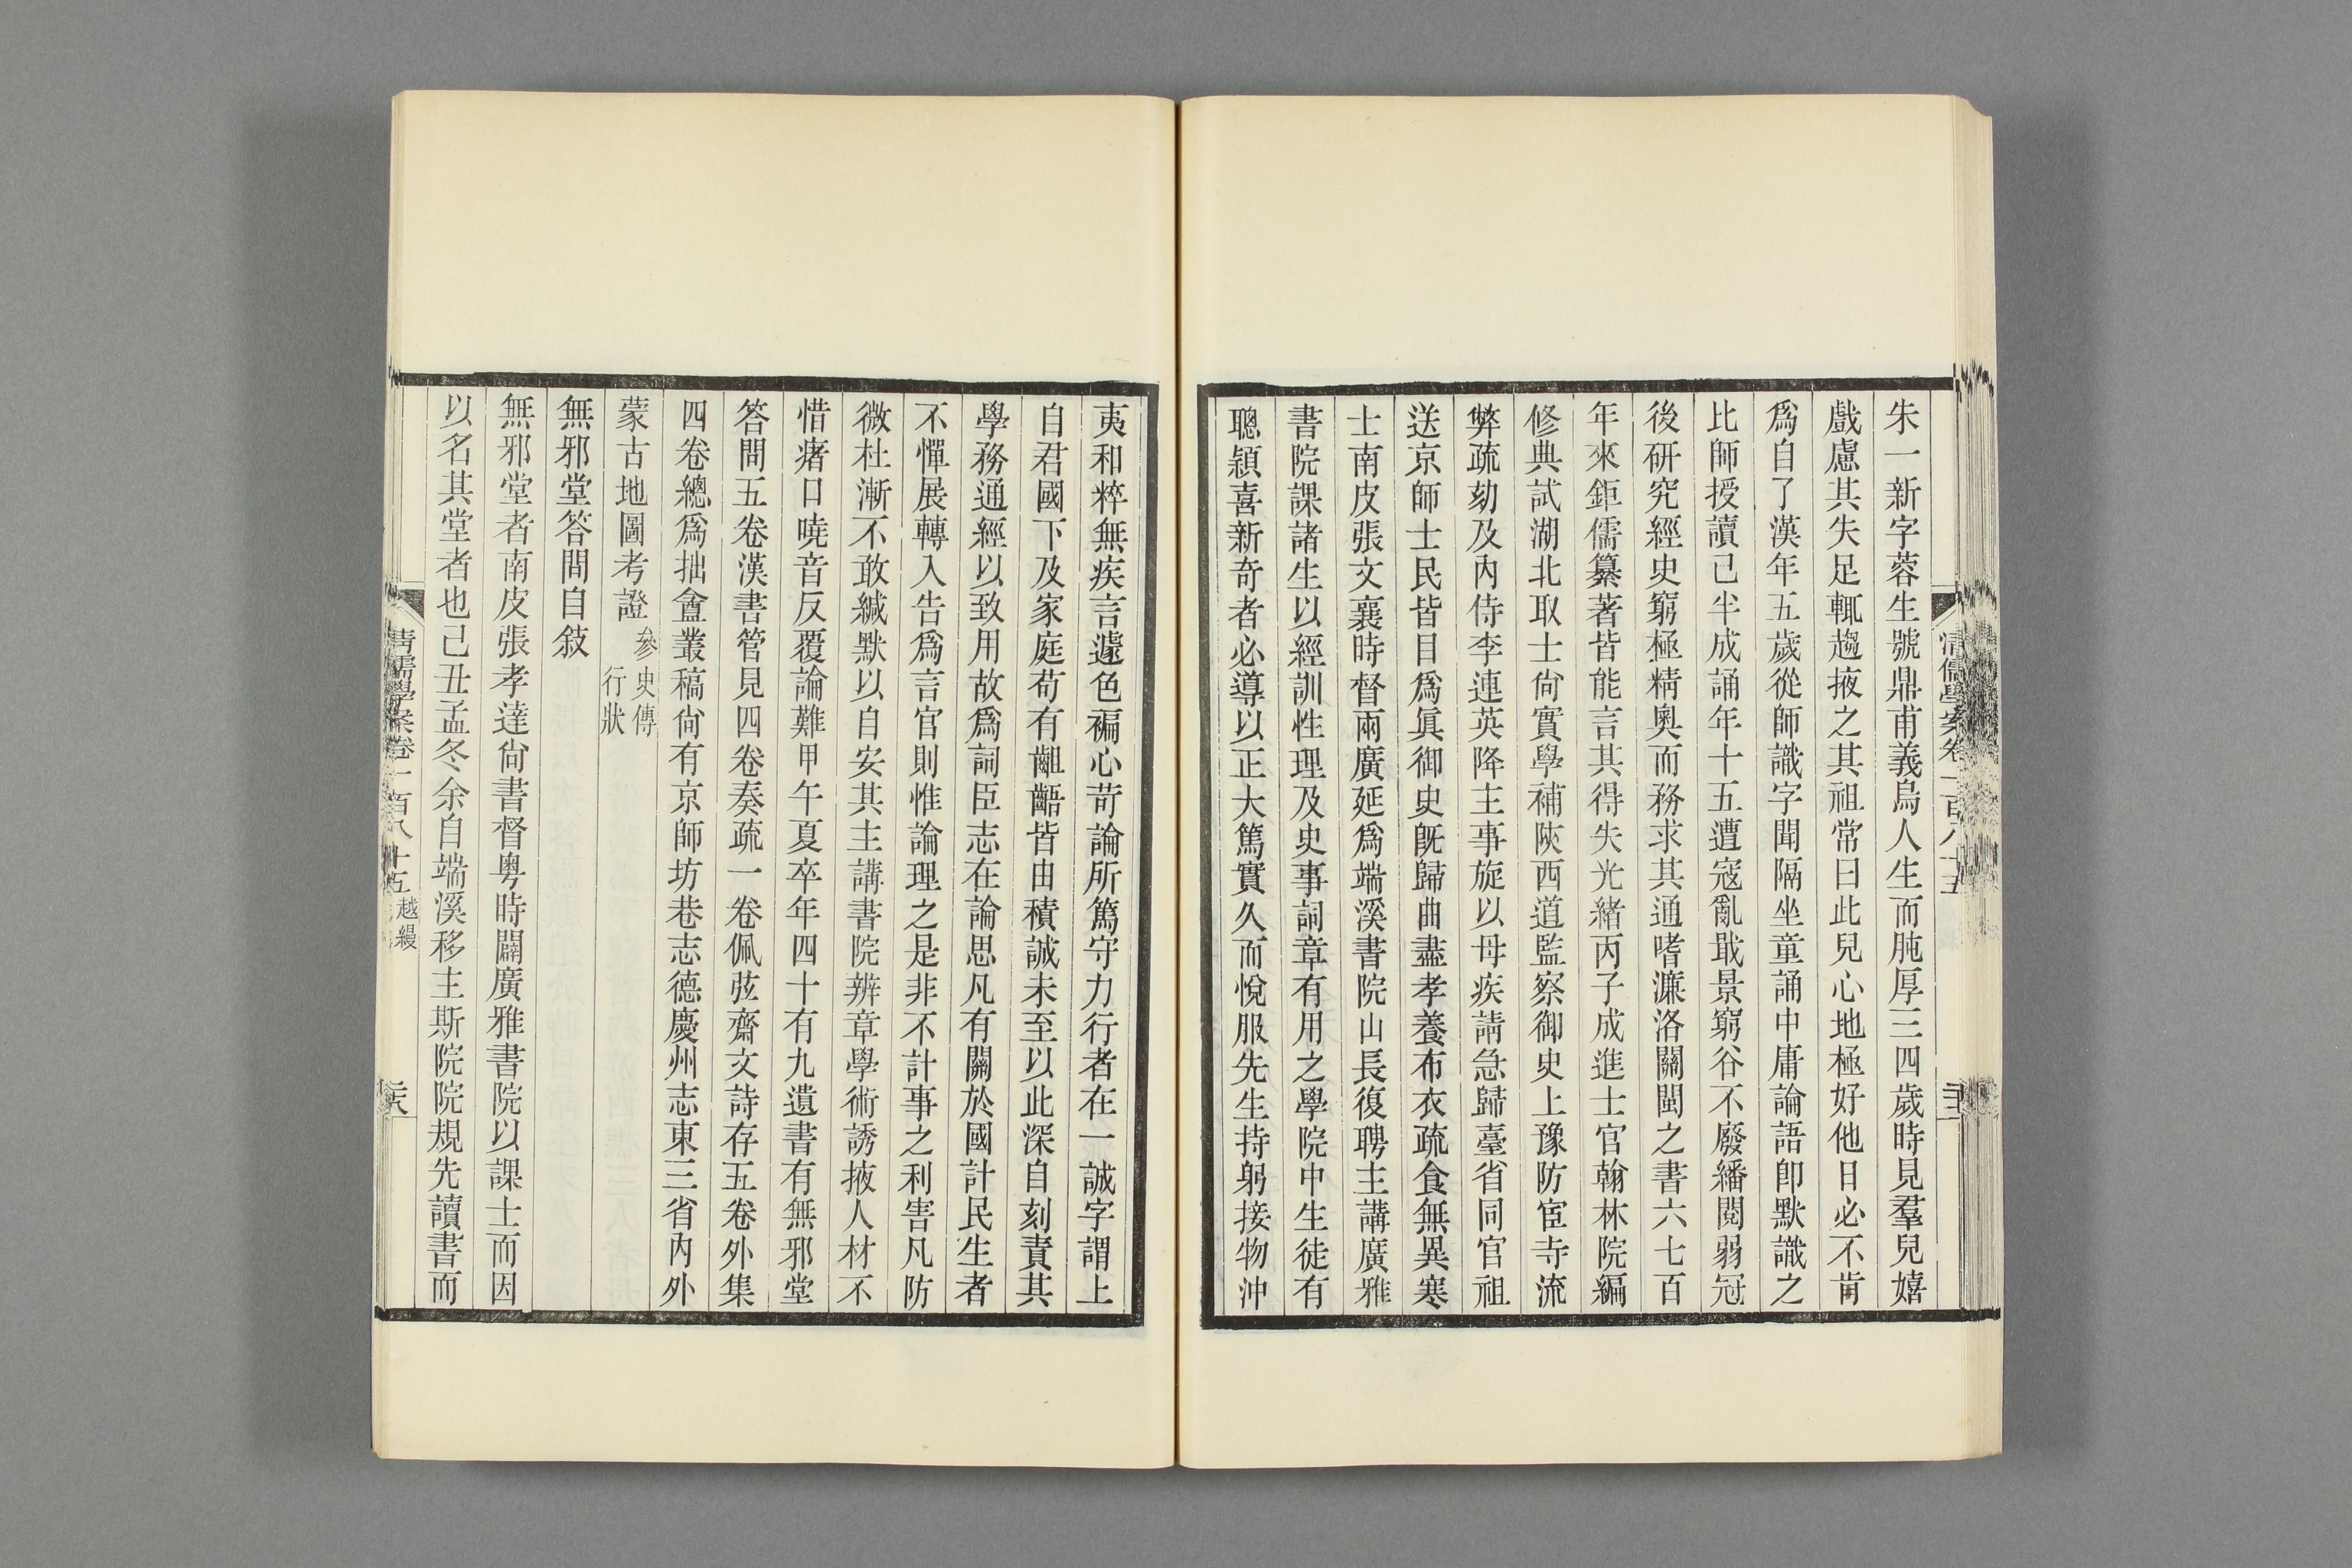 朱一新字蓉生號鼎甫義烏人生而肫厚三四歲時見羣兒嬉
戲慮其失足輒趨掖之其祖常曰此兒心地極好他日必不肯
爲自了漢年五歲從師識字聞隔坐童誦中庸論語卽默識之
比師授讀已半成誦年十五遭寇亂戢景窮谷不廢繙閱弱冠
後研究經史窮極精奧而務求其通嗜濂洛關閩之書六七百
年來鉅儒纂著皆能言其得失光緒丙子成進士官翰林院編
修典試湖北取士尙實學補陝西道監察御史上豫防宦寺流
弊疏劾及內侍李連英降主事旋以母疾請急歸臺省同官祖
送京師士民皆目爲眞御史旣歸曲盡孝養布衣疏食無異寒
士南皮張文襄時督兩廣延爲端溪書院山長復聘主講廣雅
書院課諸生以經訓性理及史事詞章有用之學院中生徒有
聰穎喜新奇者必導以正大篤實久而悅服先生持躬接物沖
夷和粹無疾言遽色褊心苛論所篤守力行者在一誠字謂上
自君國下及家庭苟有齟齬皆由積誠未至以此深自刻責其
學務通經以致用故爲詞臣志在論思凡有關於國計民生者
不憚展轉入告爲言官則惟論理之是非不計事之利害凡防
微杜漸不敢緘默以自安其主講書院辨章學術誘掖人材不
惜瘏口嘵音反覆論難甲午夏卒年四十有九遺書有無邪堂
答問五卷漢書管見四卷奏疏一卷佩弦齋文詩存五卷外集
四卷總爲拙盦叢稿尙有京師坊巷志德慶州志東三省內外
蒙古地圖考證參史傳
行狀
無邪堂答問自敍
無邪堂者南皮張孝達尙書督粤時闢廣雅書院以課士而因
以名其堂者也己丑孟冬余自端溪移主斯院院規先讀書而
清儒學案卷一百八十五 越縵